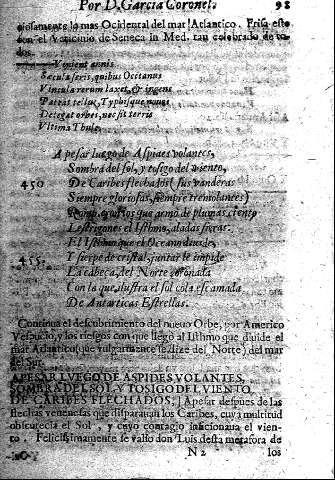 Por D. Garcia Coronel. 98
giosamente lo mas Ocidental del mar! Atlantico. Frisa esto
con el Vaticinio de Seneca in Med. tan celebrado de to-
dos.
Venient annis
Sæcula seris, quibus Oceanus
Vincula rerum laxet, & ingens
Pateat tellus, Typhisque nouos
Detegat orbes, nec sit terris
Vltima Thule.
A pesar luego de Aspides volantes,
Sombra del sol, y tosigo del viento,
450 De Caribes flechados, sus vanderas
Siempre gloriosas, siempre tremolantes,
Rompieron los que armò de plumas ciento
Lestrigones el Isthmo, aladas fieras:
El Isthmo que el Oceano diuide,
455. Y sierpe de cristal juntar le impide
La cabeça, del Norte coronada
Con la que ilustra el sol cola escamada
De Antarticas Estrellas.
Continua el descubrimiento del nueuo Orbe, por Americo
Vespucio, y los riesgos con que llegò al Isthmo que diuide el
mar Atlantico (que vulgarmente se dize del Norte) del mar
del Sur.
APESAR LUEGO DE ASPIDES VOLANTES,
SOMBRA DEL SOL Y TOSIGO DEL VIENTO
DE CARIBES FLECHADOS;] Apesar despues de las
flechas venenosas que disparauan los Caribes, cuya multitud
obscurecia el Sol, y cuyo contagio inficionaua el vien-
to. Felicissimamente se valio don Luis desta metafora de
N 2 los